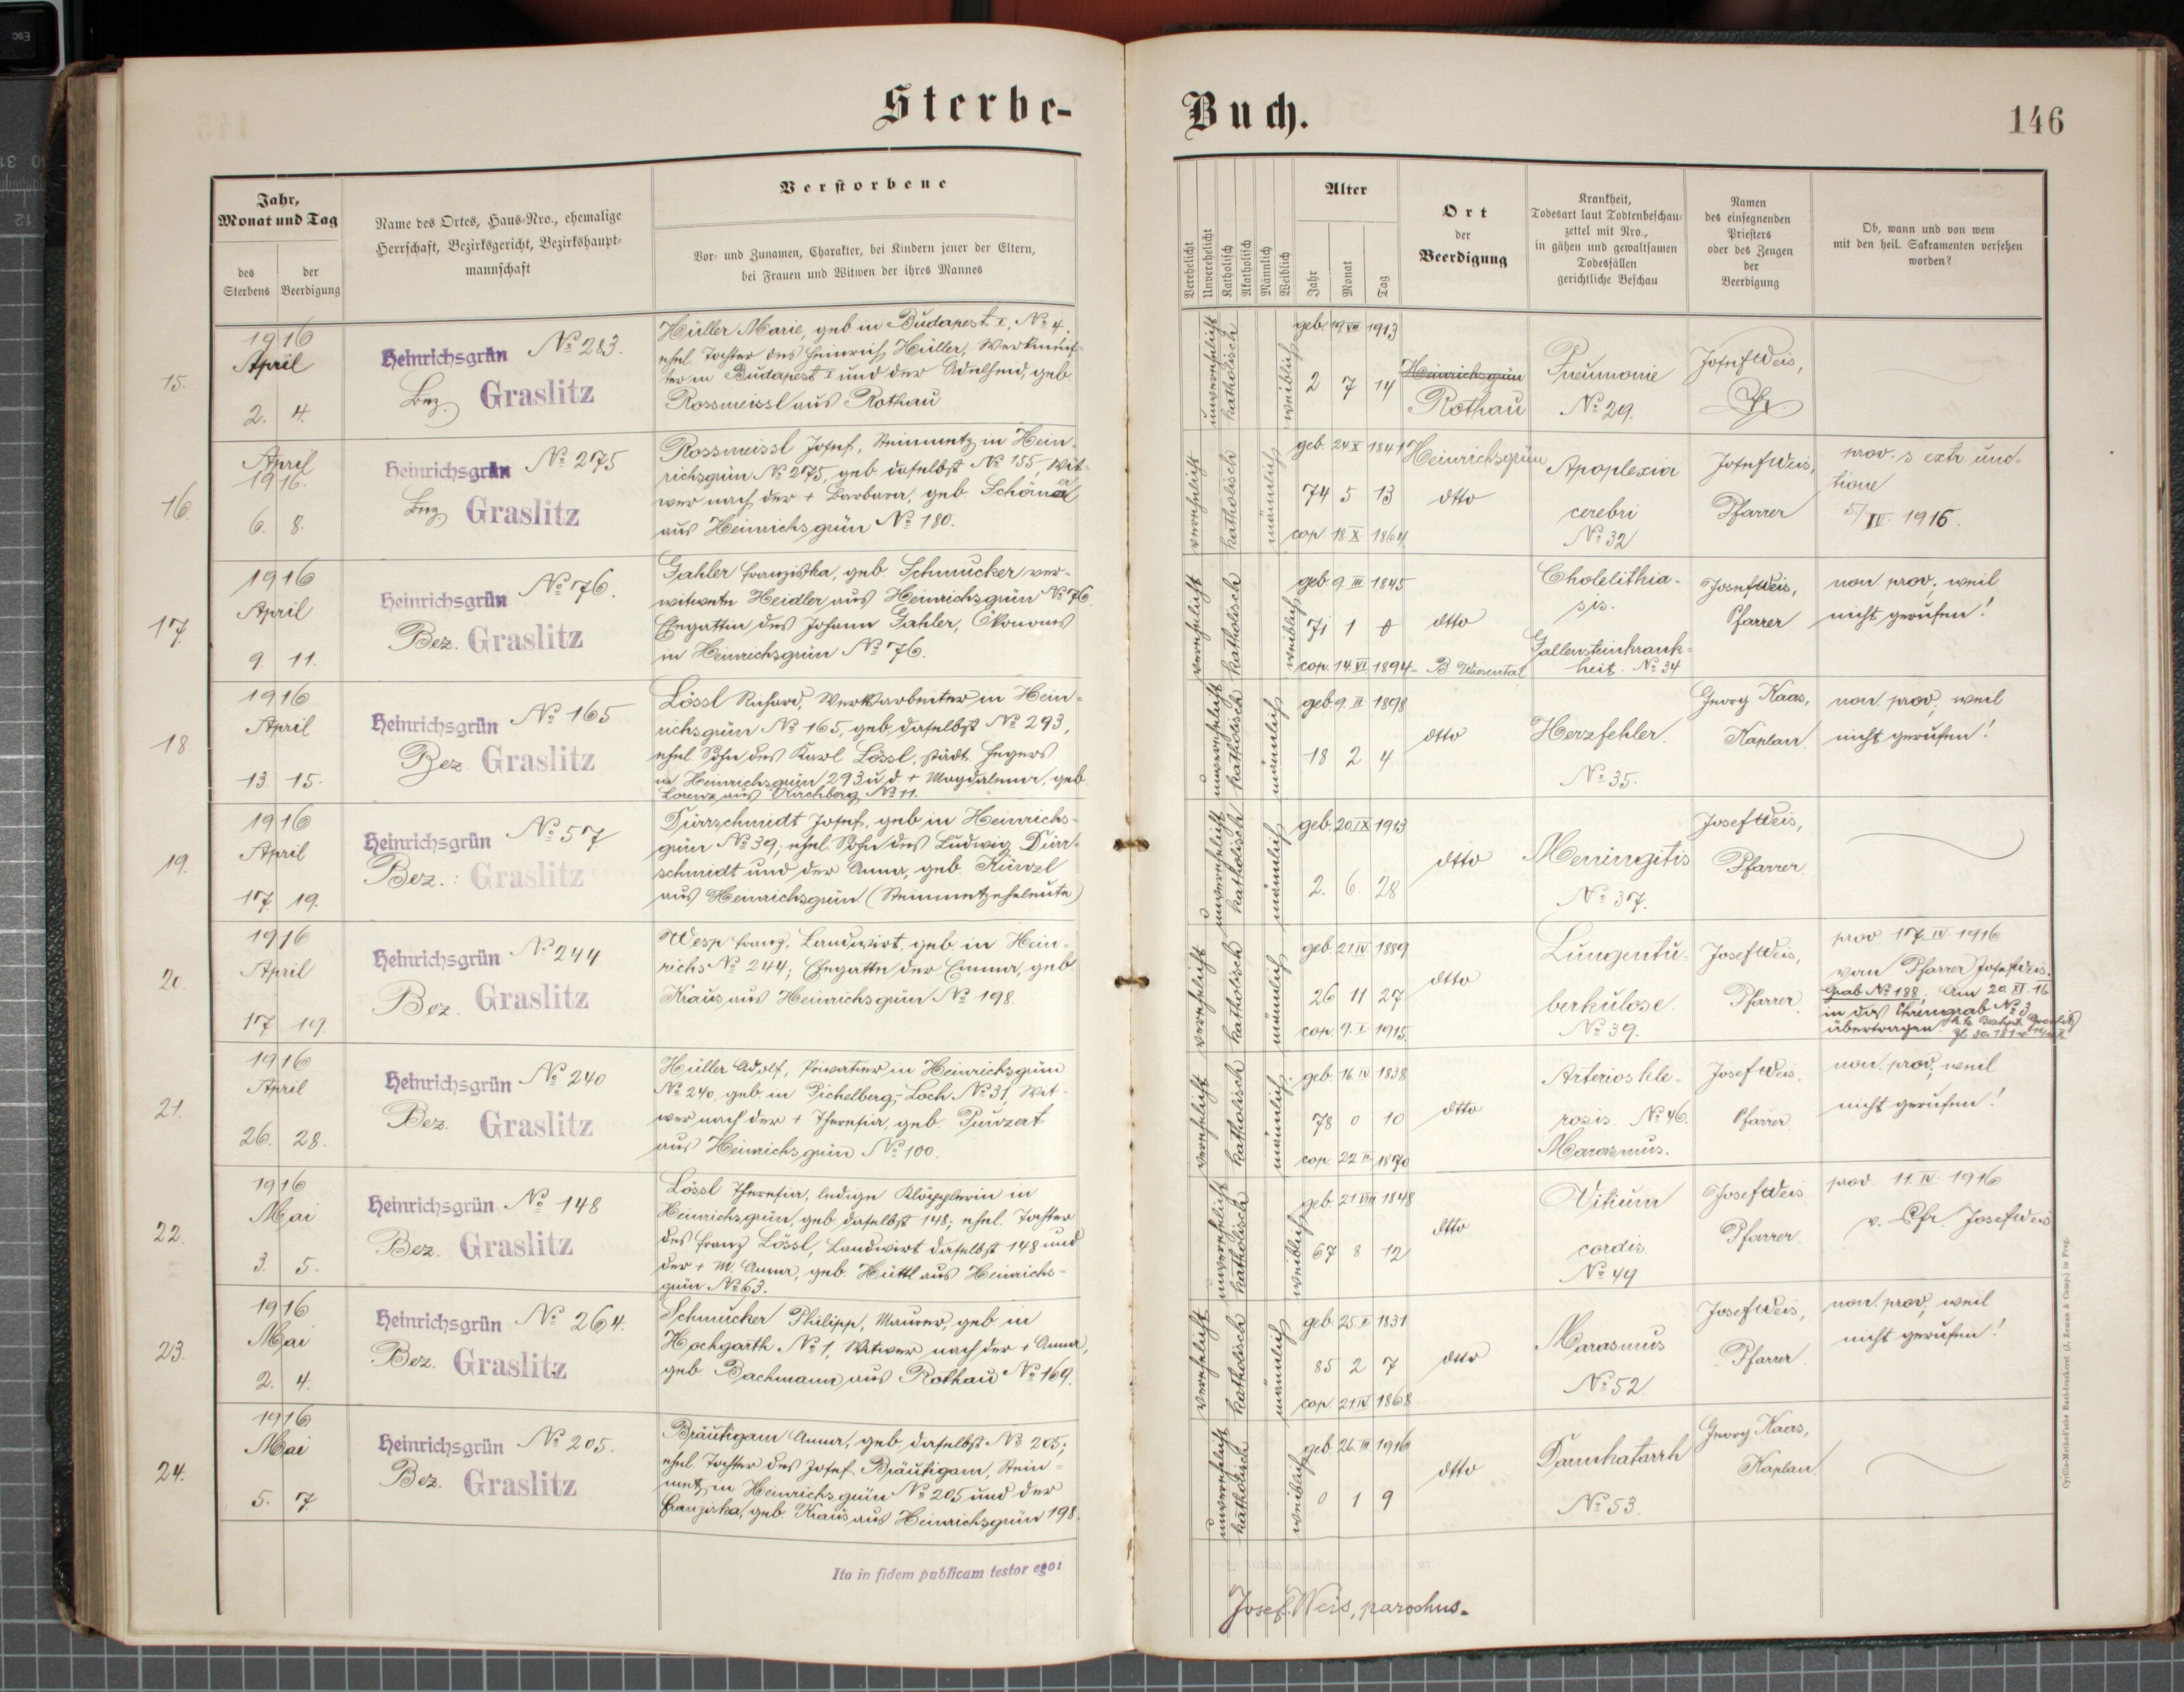 Sterbe-
Buch.
146
Jahr,
Monat und Tag
des Sterbens
der Beerdigung
Name des Ortes, Haus-Nro., ehemalige
Herrschaft, Bezirksgericht, Bezirkshaupt-
mannschaft
Verstorbene
Vor- und Zunamen, Charakter, bei Kindern jener der Eltern,
bei Frauen und Witwen der ihres Mannes
Verehelicht
Unverehelicht
Katholisch
Akatholisch
Männlich
Weiblich
Alter
Jahr
Monat
Tag
Ort
der
Beerdigung
Krankheit,
Todesart laut Todtenbeschau-
zettel mit Nro.,
in gähen und gewaltsamen
Todesfällen
gerichtliche Beschau
Namen
des einsegnenden
Priesters
oder des Zeugen
der
Beerdigung
Ob, wann und von wem
mit den heil. Sakramenten versehen
worden?
15.
1916
April
2. 4.
Heinrichsgrün № 283.
Bez. Graslitz
Hüller Marie, geb in Budapest I, № 4.
ehel Tochter des Heinrich Hüller, Werkmeis-
ter in Budapest I und der Adelheid, geb.
Rossmeissl aus Rothau
unverehelicht
katholisch
weiblich
geb. 19 VIII 1913
2 7 14
Heinrichsgrün
Rothau
Pneumonie
№ 29.
Josef Weis,
Pfr.
16.
April
1916.
6. 8.
Heinrichsgrün № 275
Bez Graslitz
Rossmeissl Josef, Steinmetz in Hein-
richsgrün № 275, geb. daselbst № 155, Wit-
wer nach der + Barbara, geb Schöna
aus Heinrichsgrün № 180.
verehelicht
katholisch
männlich
geb. 24 X 1841
74 5 13
cop 18. X 1864
Heinrichsgrün
dtto
Apoplexia
cerebri
№ 32
Josef Weis,
Pfarrer
prov. s extr. unc-
tione
5/IV. 1916.
17.
1916
April
9. 11.
Heinrichsgrün № 76.
Bez. Graslitz
Gahler Franziska, geb. Schmucker ver-
witwete Heidler aus Heinrichsgrün № 76.
Ehegattin des Johann Gahler, Ökonoms
in Heinrichsgrün № 76.
verehelicht
katholisch
weiblich
geb 9 III 1845
71 1 0
cop. 14. VI 1894
dtto
Cholelithia-
sis.
Gallensteinkrank-
heit. № 34
Josef Weis,
Pfarrer
non prov; weil
nicht gerufen!
18
1916
April
13. 15.
Heinrichsgrün № 165
Bez Graslitz
Lössl Richard, Werkarbeiter in Hein-
richsgrün № 165, geb. daselbst № 293,
ehel Sohn des Karl Lössl, städt. Hegers
in Heinrichsgrün 293 u d + Magdalena, geb
Lorenz aus Kirchberg № 11.
unverehelicht
katholisch
männlich
geb 9. II 1898
18 2 4
dtto
Herzfehler.
№ 35.
Georg Kaas,
Kaplan.
non. prov; weil
nicht gerufen!
19.
1916
April
17. 19.
Heinrichsgrün № 57
Bez.: Graslitz
Dürrschmidt Josef, geb in Heinrichs-
grün № 39; ehel. Sohn des Ludwig Dürr-
schmidt und der Anna, geb. Künzl
aus Heinrichsgrün (Steinmetzeheleute)
unverehelicht
katholisch
männlich
geb. 20. IX 1913
2. 6. 28
dtto
Meningitis
№ 37.
Josef Weis,
Pfarrer.
20
1916
April
17 19.
Heinrichsgrün № 244
Bez. Graslitz
Wesp Franz, Landwirt, geb in Hein-
richs № 244; Ehegatte der Emma, geb
Kraus aus Heinrichsgrün № 198.
verehelicht
katholisch
männlich
geb. 21 IV 1889
26 11 27
cop. 9. I 1915.
dtto
Lungentu-
berkulose.
№ 39.
Josef Weis,
Pfarrer.
prov 17. IV 1916
von Pfarrer Josef Weis.
Grab № 188; Am 20. XI 16
in das Ehrengrab № 3
übertragen.
21.
1916
April
26. 28.
Heinrichsgrün № 240
Bez. Graslitz
Hüller Adolf, Privatier in Heinrichsgrün
№ 240, geb. in Pichelberg-Loch № 31, Wit-
wer nach der + Theresia, geb. Punzert
aus Heinrichsgrün № 100.
verehelicht
katholisch
männlich
geb 16 IV 1838
78 0 10
cop. 22 1870
dtto
Arterioskle-
rosis. № 46.
Marasmus.
Josef Weis.
Pfarrer
non. prov; weil
nicht gerufen!
22.
1916
Mai
3. 5.
Heinrichsgrün № 148
Bez. Graslitz
Lössl Theresia, ledige Klöpplerin in
Heinrichsgrün, geb daselbst 148; ehel. Tochter
des Franz Lössl, Landwirt daselbst 148 und
der + M. Anna, geb. Hüttl aus Heinrichs-
grün № 63.
unverehelicht
katholisch
weiblich
geb. 21 VIII 1848
67 8 12
dtto
Vitium
cordis
№ 49
Josef Weis
Pfarrer.
prov 11. IV 1916
v. Pfr. Josef Weis
23.
1916
Mai
2. 4.
Heinrichsgrün № 264.
Bez. Graslitz
Schmucker Philipp, Maurer, geb in
Hochgarth № 1, Witwer nach der + Anna,
geb Bachmann aus Rothau № 169.
verehelicht
katholisch
männlich
geb 25. II 1831
85 2 7
cop. 21. IV 1868
dtto
Marasmus
№ 52.
Josef Weis,
Pfarrer
non. prov; weil
nicht gerufen!
24.
1916
Mai
5. 7
Heinrichsgrün № 205.
Bez. Graslitz
Bräutigam Anna, geb daselbst № 205;
ehel Tochter des Josef Bräutigam, Stein-
metz in Heinrichsgrün № 205 und der
Franziska, geb Kraus aus Heinrichsgrün 198.
unverehelicht
katholisch
weiblich
geb 26. III 1916
0 1 9
dtto
Darmkatarrh
№ 53.
Georg Kaas,
Kaplan.
Ita in fidem publicam testor ego:
Josef Weis, parochus.
Cyrillo-Method'sche Buchdruckerei (J. Zeman & Comp.) in Prag.